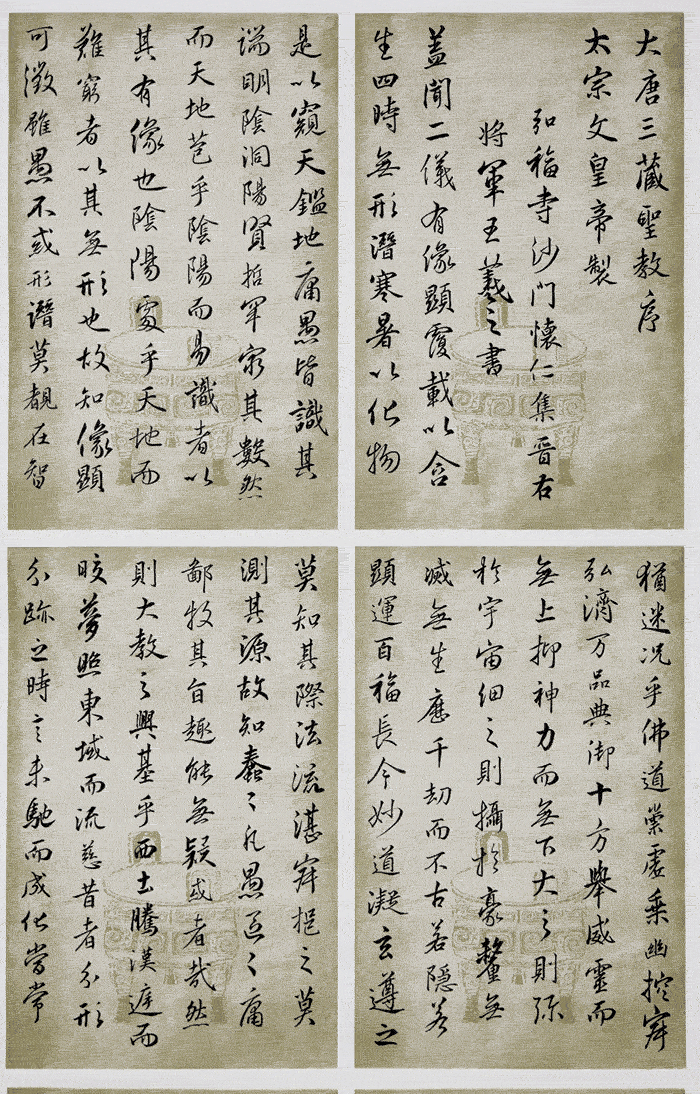 大唐三藏聖教序
太宗文皇帝製
弘福寺沙門懷仁集晉右
將軍王羲之書
蓋聞二儀有像顯覆載以含
生四時無形潛寒暑以化物
是以窺天鑑地庸愚皆識其
端明陰洞陽賢哲罕窮其數然
而天地苞乎陰陽而易識者以
其有像也陰陽處乎天地而
難窮者以其無形也故知像顯
可徵雖愚不惑形潛莫覩在智
猶迷況乎佛道崇虛乘幽控寂
弘濟万品典御十方舉威靈而
無上抑神力而無下大之則彌
於宇宙細之則攝於豪釐無
滅無生歷千劫而不古若隱若
顯運百福長今妙道凝玄遵之
莫知其際法流湛寂挹之莫
測其源故知蠢〻凡愚區〻庸
鄙投其旨趣能無疑或者哉然
則大教之興基乎西土騰漢庭而
皎夢照東域而流慈昔者分形
分跡之時言未馳而成化當常